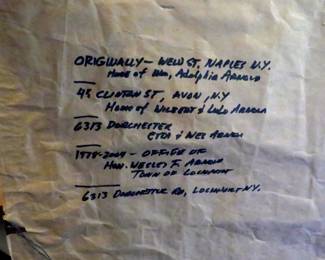 ORIGINALLY - WEW ST, NAPLES N.Y.
Home of Wm, Adolphia Arnold
45 CLINTON ST, AVON, N.Y
Home of Wilbert & Lulo Arnold
6313 DORCHESTER
& Wes Arnold
1978-2004 - OFFICE OF
HON. WESLEY F. ARNOLD
TOWN OF LOCKPORT
6313 DORCHESTER RD, LOCKPORT N.Y.